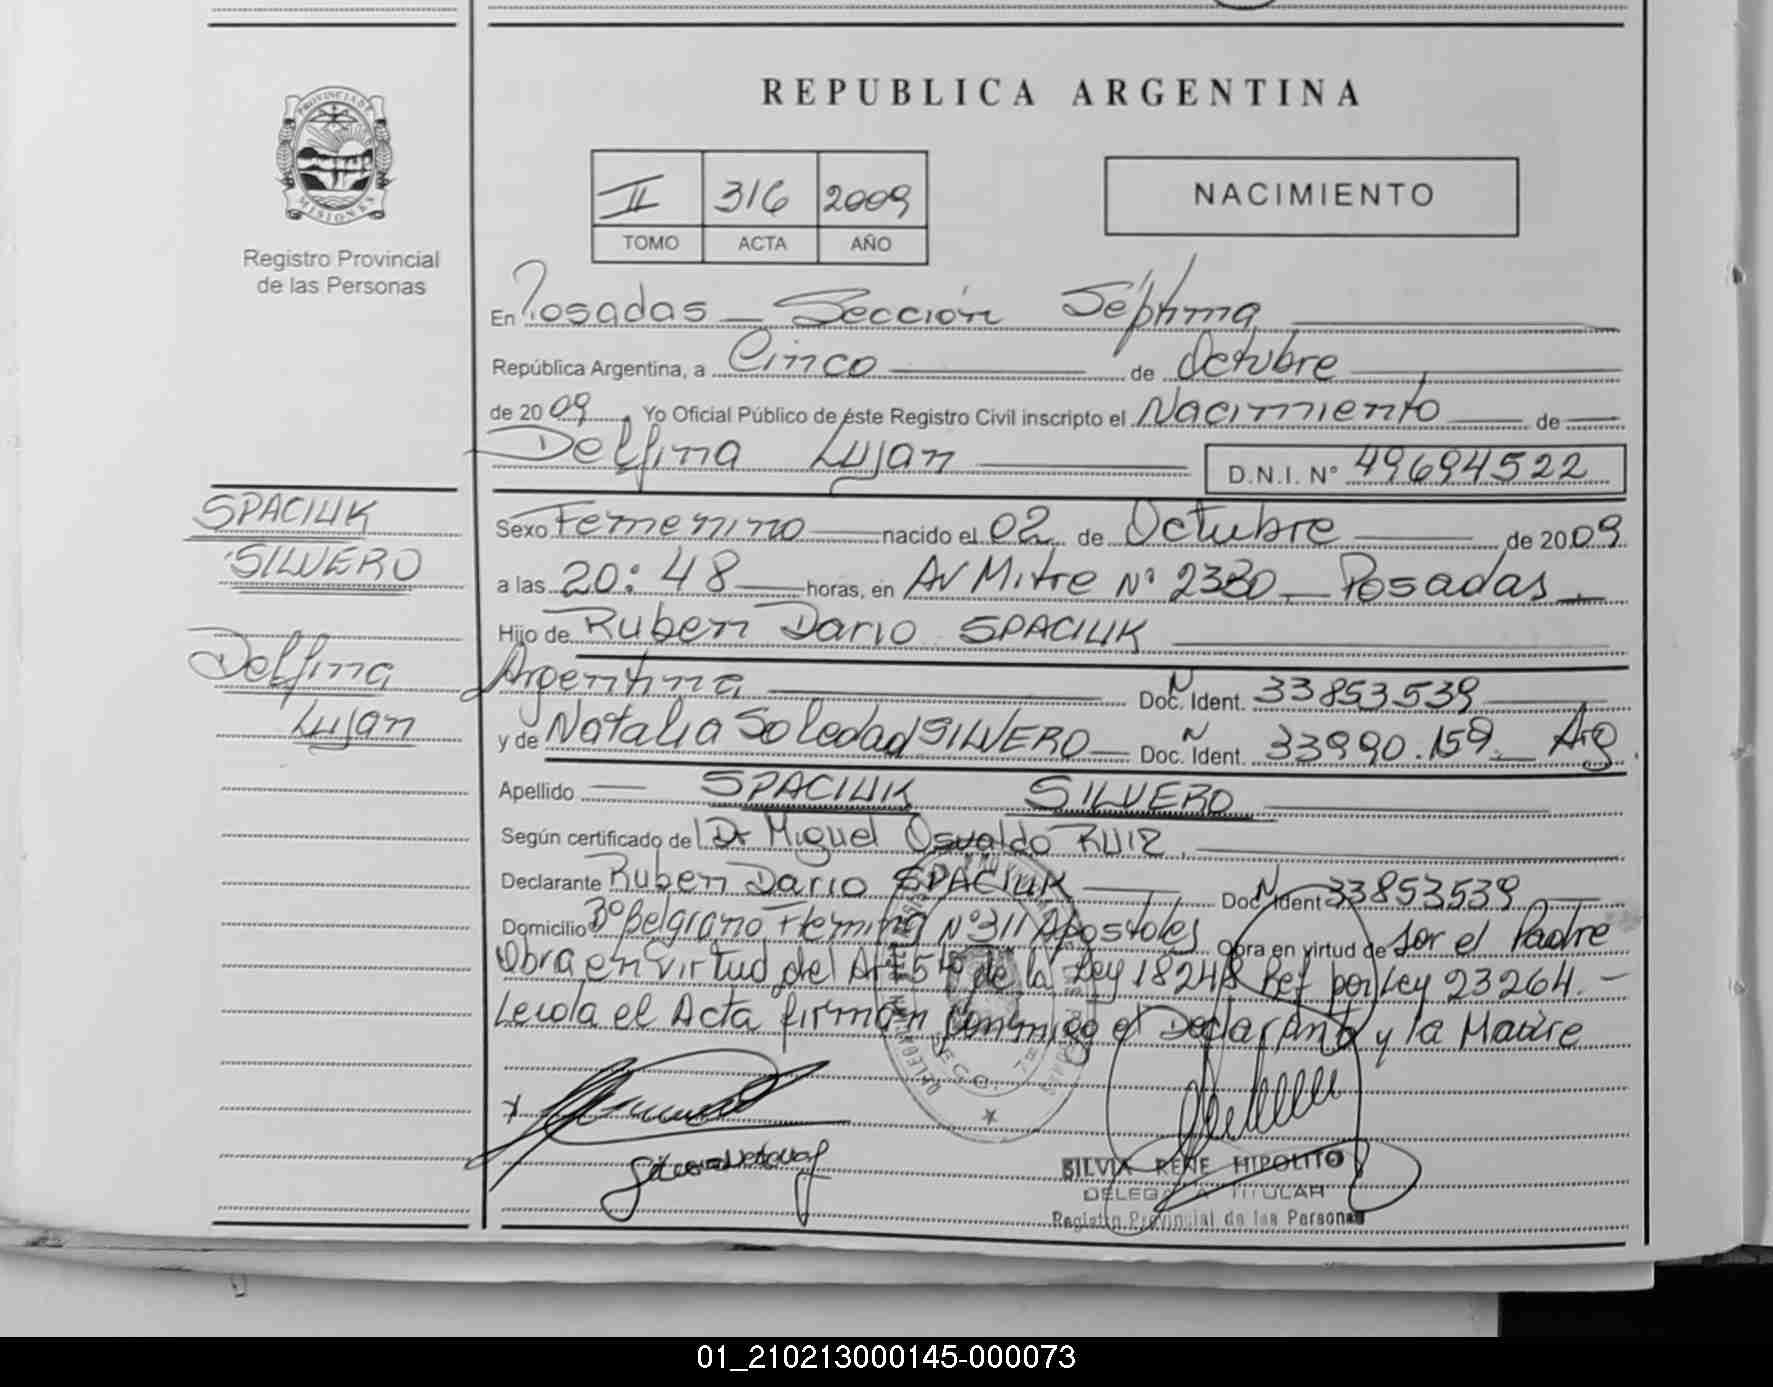 REPUBLICA ARGENTINA
PROVINCIA DE
MISIONES
Registro Provincial
de las Personas
II 316 2009
TOMO ACTA AÑO
NACIMIENTO
En Posadas — Sección Séptima
República Argentina, a Cinco de Octubre
de 2009, Yo Oficial Público de éste Registro Civil inscripto el Nacimiento de
Delfina Lujan D.N.I. Nº 49694522
SPACIUK
SILVERO
Delfina
Lujan
Sexo Femenino nacido el 02 de Octubre de 2009
a las 20:48 horas, en Av Mitre Nº 2380 — Posadas
Hijo de Ruben Dario SPACIUK
Argentina Doc. N Ident. 33853539
y de Natalia Soledad SILVERO Doc. N Ident. 33990.159 Arg.
Apellido SPACIUK SILVERO
Según certificado de Dr Miguel Osvaldo RUIZ
Declarante Ruben Dario SPACIUK Doc N Ident 33853539
Domicilio Bº Belgrano Fleming Nº 311 Apostoles Obra en virtud de Ser el Padre
Obra en virtud del Art 5to de la Ley 18248 Ref por Ley 23264.-
Leida el Acta firman conmigo el Declarante y la Madre
SILVIA RENE HIPOLITO
DELEGADA TITULAR
Registro Provincial de las Personas
01_210213000145-000073